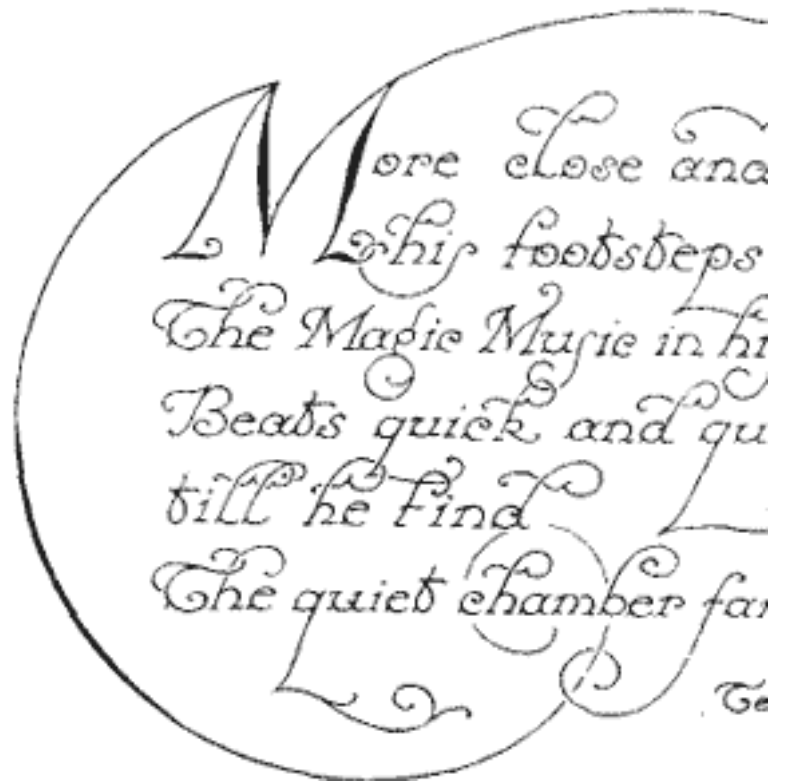 More close and
his footsteps
The Magic Music in hi
Beats quick and qu
till he find
The quiet chamber far
Te